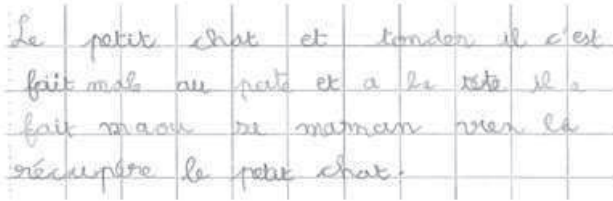 Le petit chat et tonden il c'est
fait male au pate et a la tete il a
fait maou se maman vien la
récupére le petit chat.